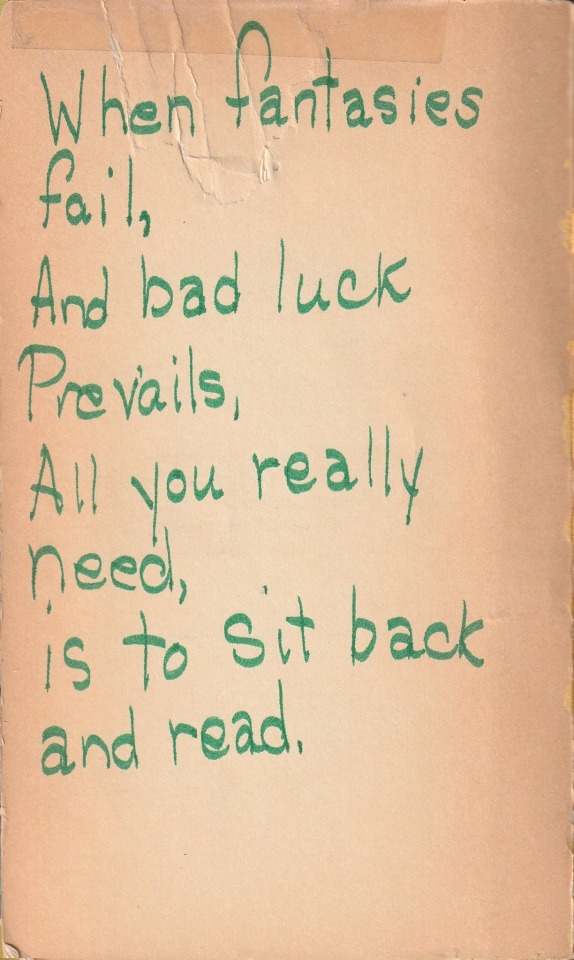 When fantasies
fail,
And bad luck
Prevails,
All you really
need,
is to sit back
and read.